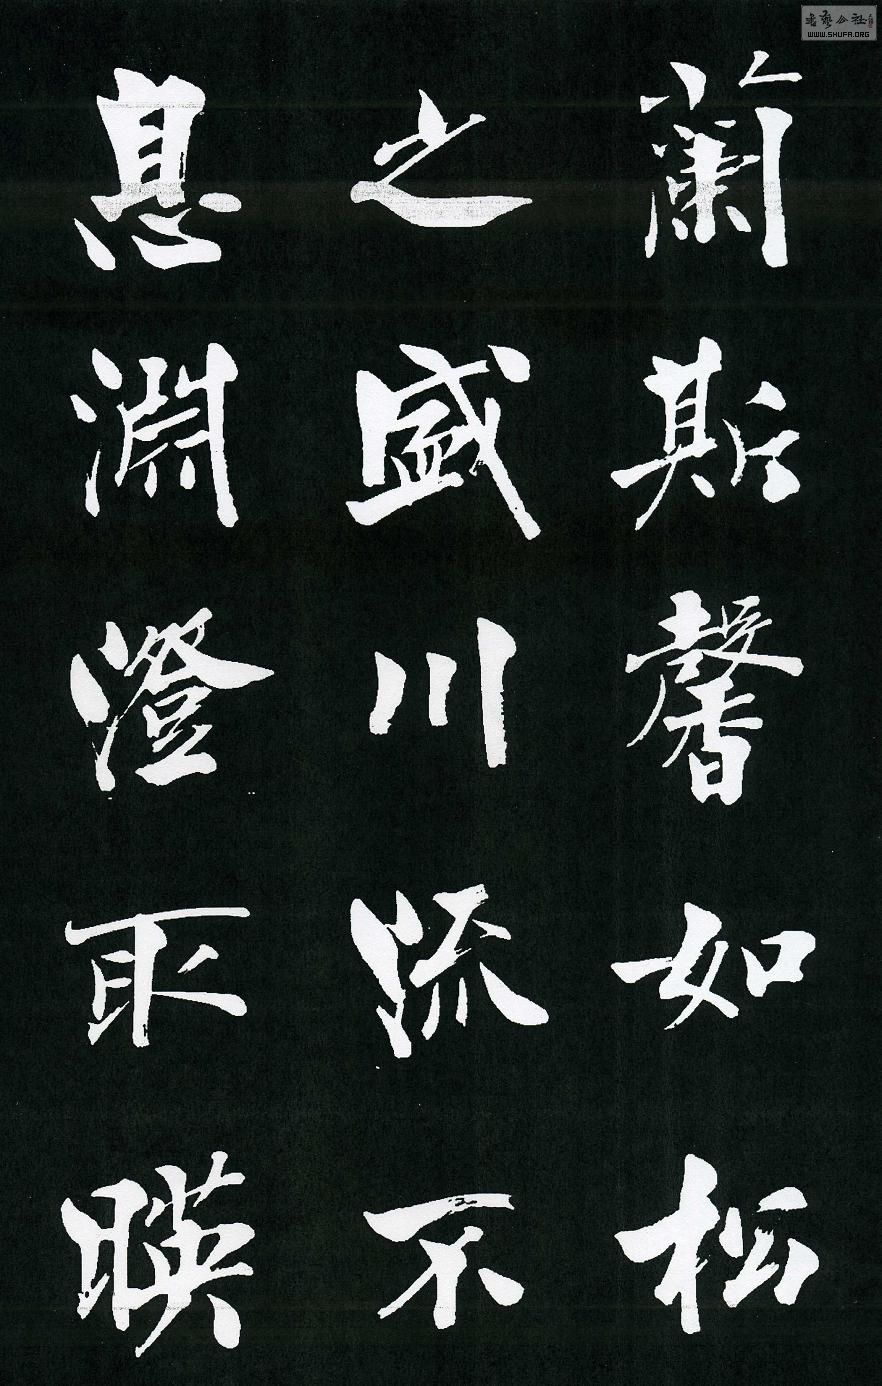 蘭斯馨如松
之盛川流不
息淵澄取暎
WWW.SHUFA.ORG